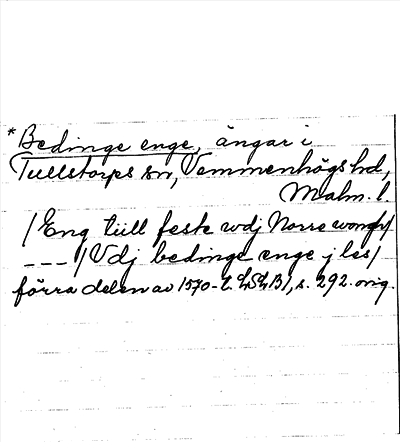 *Bedinge enge, ängar i
Tullstorps sn, Vemmenhögs hd,
Malm. l.
/Eng tüll feste wdj Norre
---/Vdj bedinge enge j les/
förra delen av 1570-t. s. 292. orig.